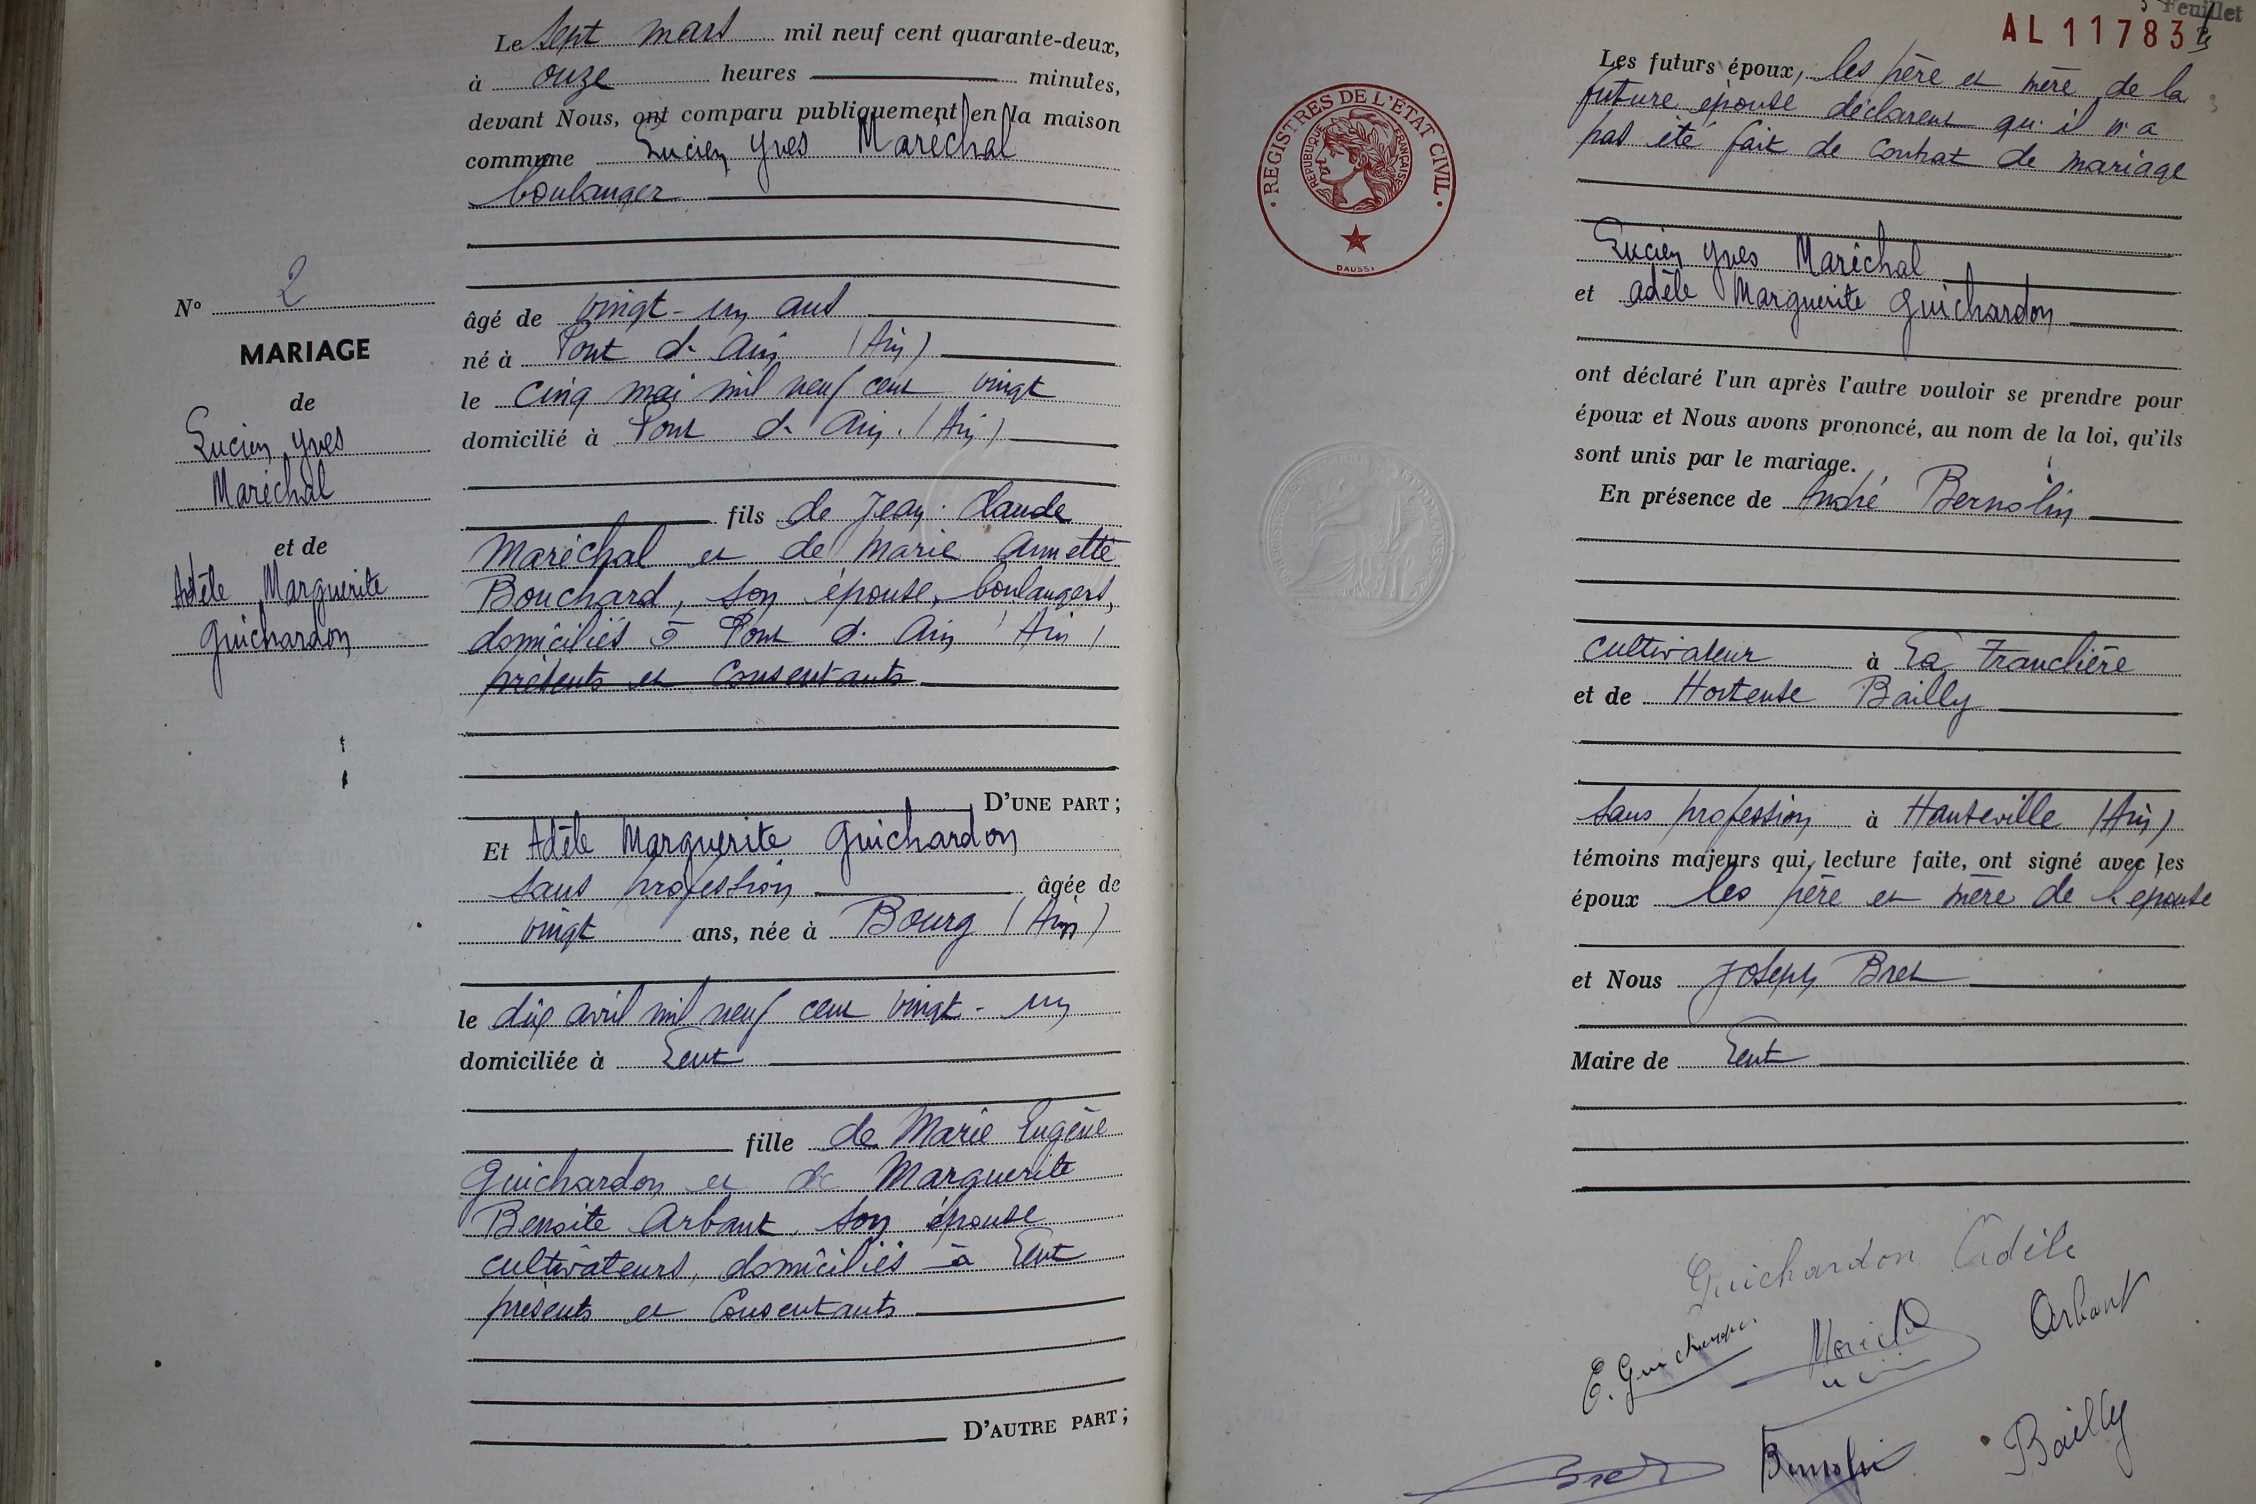 Le sept mars mil neuf cent quarante-deux,
à onze heures minutes,
devant Nous, ont comparu publiquement en la maison
commune Lucien Yves Maréchal
boulanger
âgé de vingt-un ans
né à Pont d'Ain (Ain)
le cinq mai mil neuf cent vingt
domicilié à Pont d'Ain (Ain)
fils de Jean Claude
Maréchal et de Marie Annette
Bouchard, son épouse, boulangers,
domiciliés à Pont d'Ain (Ain)
présents et consentants
D'UNE PART;
Et Adèle Marguerite Guichardon
sans profession âgée de
vingt ans, née à Bourg (Ain)
le dix avril mil neuf cent vingt-un
domiciliée à Lent
fille de Marie Eugène
Guichardon et de Marguerite
Benoite Arbant, son épouse
cultivateurs, domiciliés à Lent
présents et consentants
D'AUTRE PART;
N° 2
MARIAGE
de
Lucien Yves
Maréchal
et de
Adèle Marguerite
Guichardon
Feuillet
AL 11783
REGISTRES DE L'ETAT CIVIL
REPUBLIQUE FRANÇAISE
DAUSSI
Les futurs époux, les père et mère de la
future épouse déclarent qu'il n'a
pas été fait de contrat de mariage
Lucien Yves Maréchal
et Adèle Marguerite Guichardon
ont déclaré l'un après l'autre vouloir se prendre pour
époux et Nous avons prononcé, au nom de la loi, qu'ils
sont unis par le mariage.
En présence de André Bernolin
cultivateur à La Tranclière
et de Hortense Bailly
sans profession à Hauteville (Ain)
témoins majeurs qui, lecture faite, ont signé avec les
époux les père et mère de l'épouse
et Nous Joseph Bret
Maire de Lent
Guichardon Adèle
E. Guichardon Maréchal Arbant
Bret Bernolin Bailly